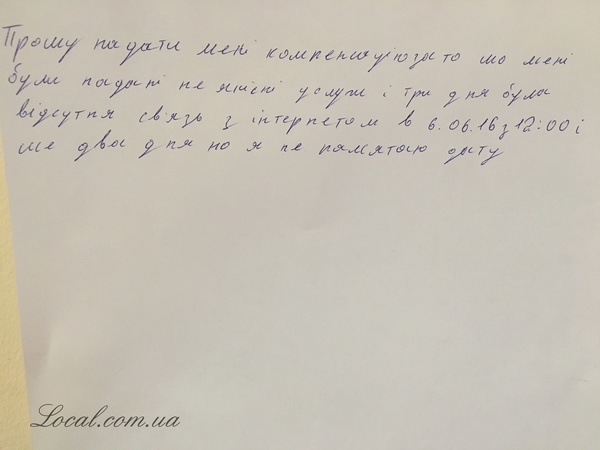 Прошу надати мені компенсацію за то шо мені
були надані не якісні услуги і три дня була
відсутня связь з інтернетом в 6.06.16 з 12:00 і
ше два дня но я не памятаю дату
Local.com.ua